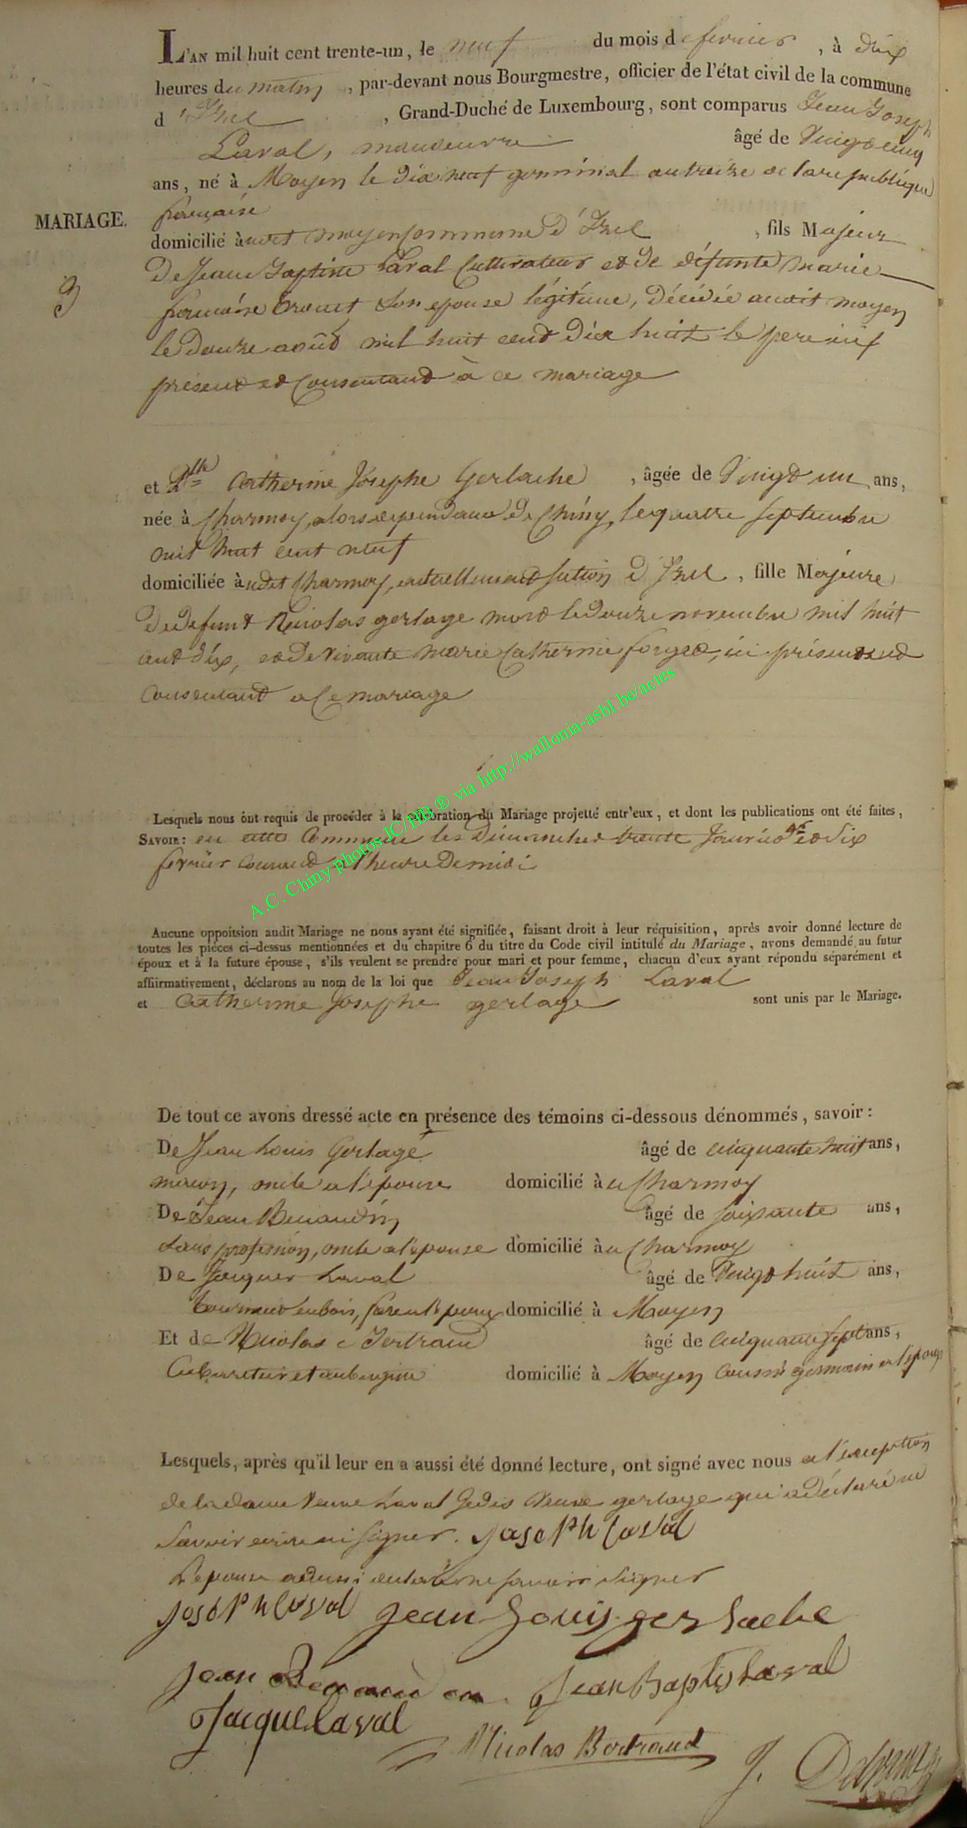 L'AN mil huit cent trente-un, le neuf du mois de fevrier, à dix
heures du matin, par-devant nous Bourgmestre, officier de l'état civil de la commune
d'Izel, Grand-Duché de Luxembourg, sont comparus Jean Joseph
Laval, manoeuvre âgé de Vingt cinq
ans, né à Moyen le dix neuf germinal an treize de la republique
française
MARIAGE.
domicilié audit moyen commune d'Izel, fils Majeur
3
De Jean Baptiste Laval Cultivateur et de défunte marie
françoise son epouse légitime, décédée audit moyen
le douze août mil huit cent dix huit le pere ici
présent et Consentant à ce mariage
et Dlle Catherine Josephe Gerlache, âgée de Vingt un ans,
née à Charmoy, alors dependance de Chiny, le quatre septembre
mil huit cent neuf
domiciliée audit Charmoy, actuellement section d'Izel, fille Majeure
De defunt Nicolas gerlage mort le douze novembre mil huit
cent dix, et de vivante marie Catherine forget, ici présente et
Consentant a ce mariage
Lesquels nous ont requis de procéder à la célébration du Mariage projetté entr'eux, et dont les publications ont été faites,
SAVOIR: en cette Commune les Dimanches trente Janvier et six
fevrier courant a l'heure de midi
Aucune oppoitsion audit Mariage ne nous ayant été signifiée, faisant droit à leur réquisition, après avoir donné lecture de
toutes les pièces ci-dessus mentionnées et du chapitre 6 du titre du Code civil intitulé du Mariage, avons demandé au futur
époux et à la future épouse, s'ils veulent se prendre pour mari et pour femme, chacun d'eux ayant répondu séparément et
affirmativement, déclarons au nom de la loi que Jean Joseph Laval
et Catherine Josephe gerlage sont unis par le Mariage.
De tout ce avons dressé acte en présence des témoins ci-dessous dénommés, savoir:
De Jean Louis Gerlage âgé de cinquante huit ans,
oncle a l'épouse domicilié à Charmoy
De Jean âgé de soixante ans,
sans profession, oncle a l'epouse domicilié à Charmoy
De Jacques Laval âgé de Vingt huit ans,
tourneur en bois, domicilié à Moyen
Et de Nicolas Bertrand âgé de cinquante sept ans,
Cabaretier et aubergiste domicilié à Moyen Cousin germain a l'epoux
Lesquels, après qu'il leur en a aussi été donné lecture, ont signé avec nous a l'exception
de la dame Veuve gerlage qui a déclaré ne
savoir ecrire ni signer. Joseph Laval
L'epouse a aussi declaré ne savoir signer
Joseph Laval Jean Louis gerlache
Jean Jean Baptist Laval
Jacque Laval
Nicolas Bertrand
J.
A.C. Chiny photos JC/HB ® via http://wallonia-asbl.be/actes